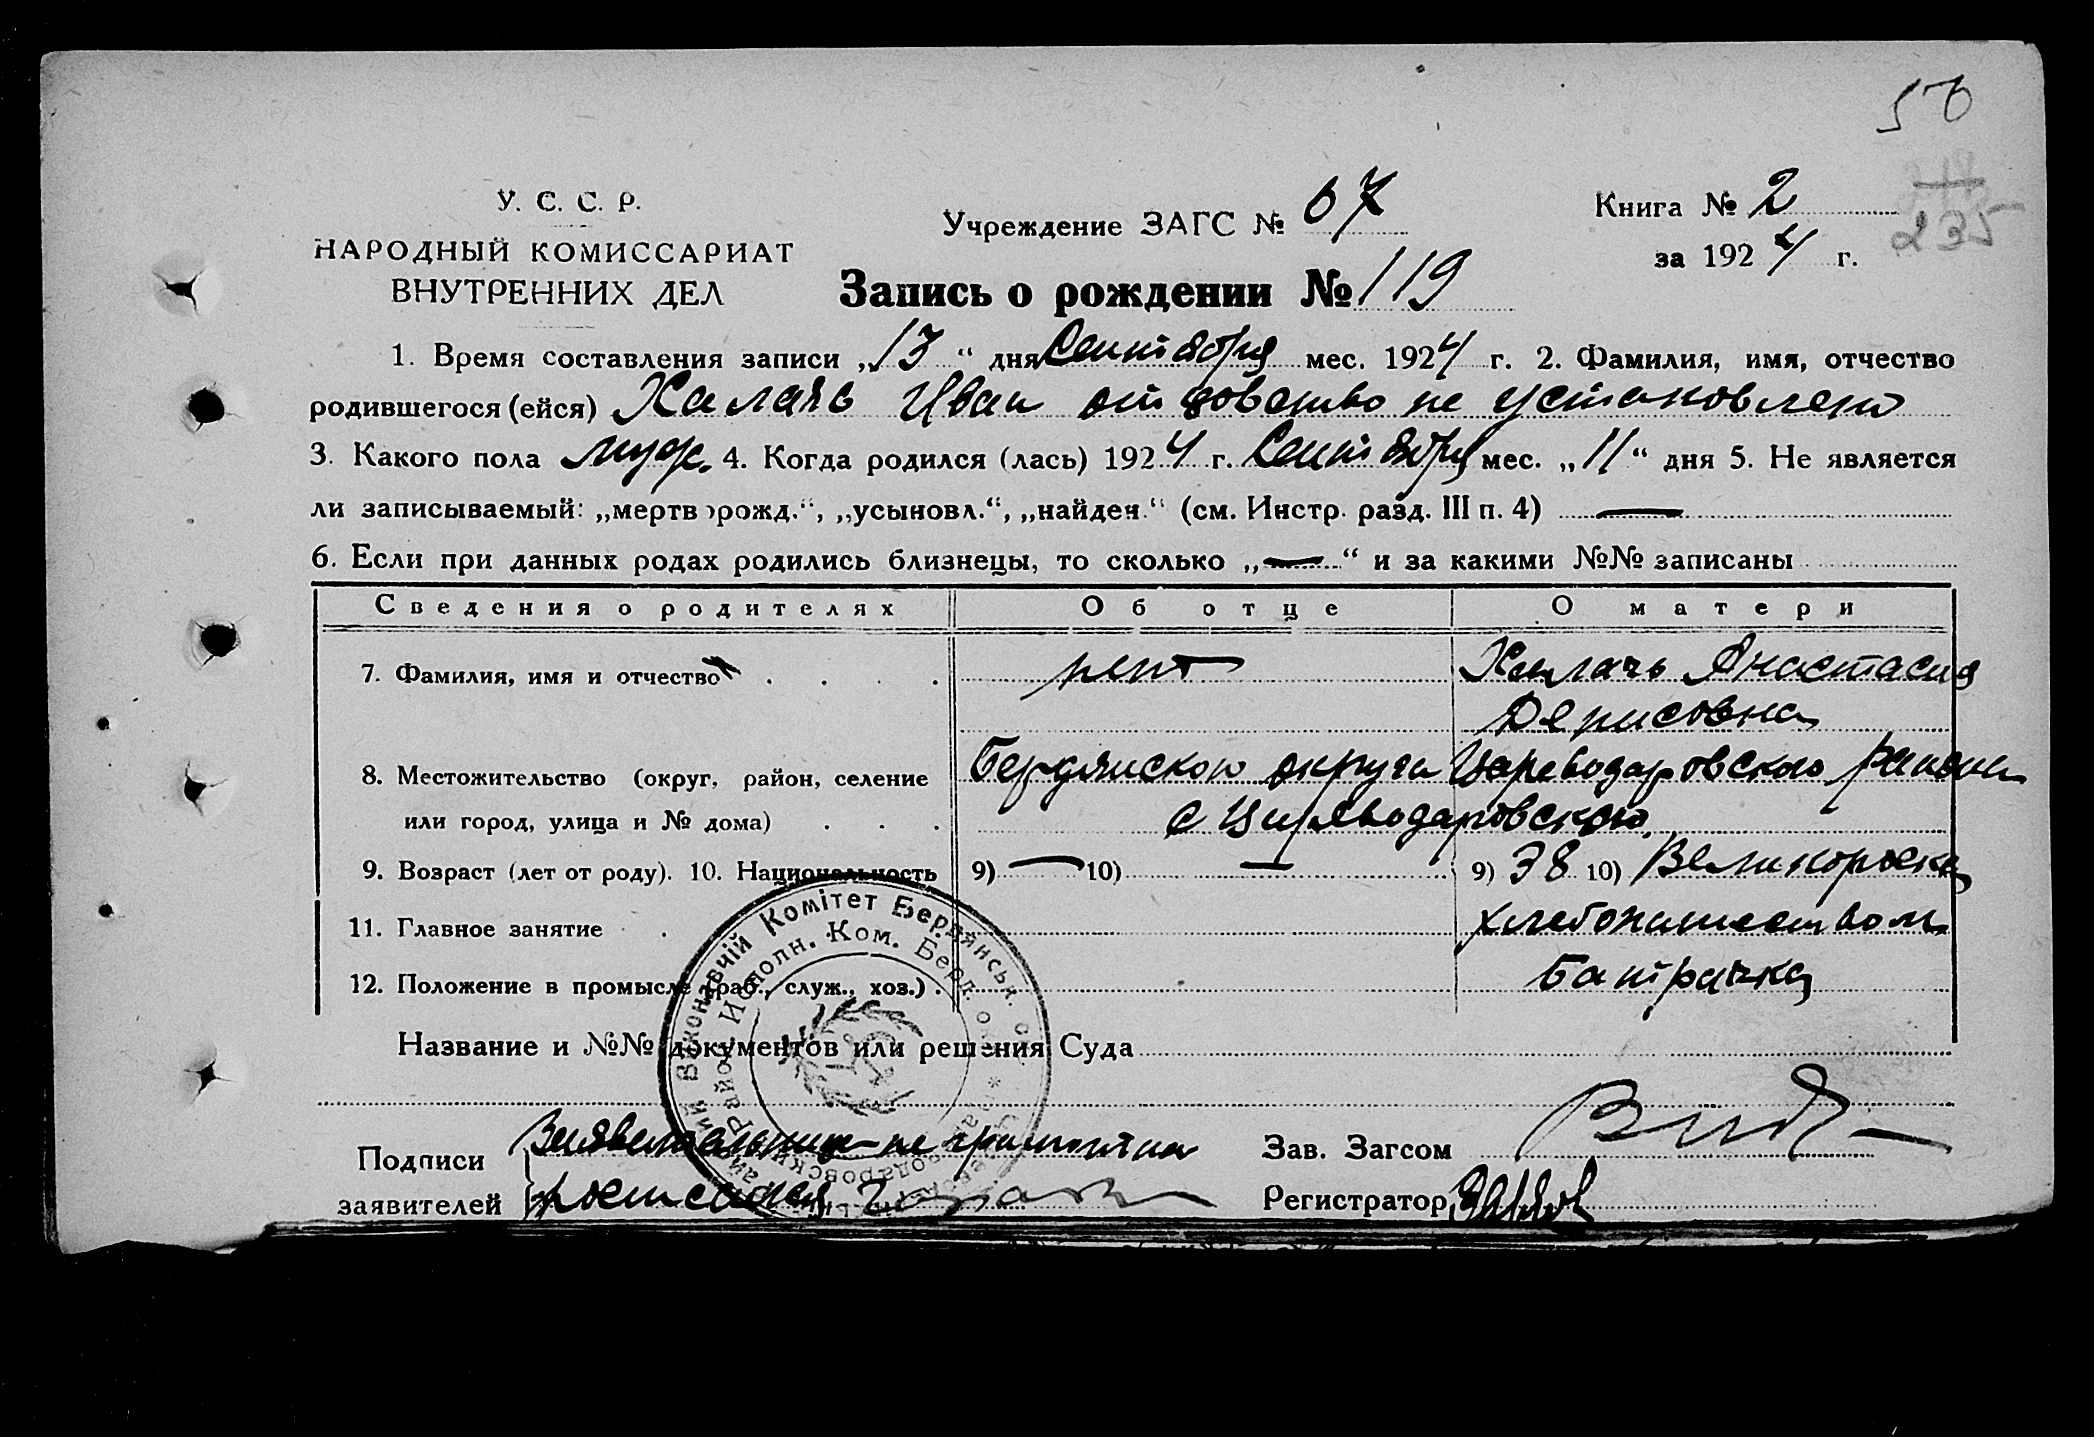 50
У. С. С. Р.
НАРОДНЫЙ КОМИССАРИАТ
ВНУТРЕННИХ ДЕЛ
Учреждение ЗАГС № 67
Книга № 2
за 1924 г.
235
Запись о рождении № 119
1. Время составления записи „13“ дня Сентября мес. 1924 г. 2. Фамилия, имя, отчество
родившегося (ейся) Калачь Иван отцовство не установлено
3. Какого пола муж. 4. Когда родился (лась) 1924 г. Сентября мес. „11“ дня 5. Не является
ли записываемый: „мертворожд.“, „усыновл.“, „найден.“ (см. Инстр. разд. III п. 4) —
6. Если при данных родах родились близнецы, то сколько „—“ и за какими №№ записаны
Сведения о родителях Об отце О матери
7. Фамилия, имя и отчество нет Калачь Анастасия
Денисовна
8. Местожительство (округ, район, селение Бердянского округа Цареводаровского района
или город, улица и № дома) с Цареводаровского
9. Возраст (лет от роду). 10. Национальность 9) — 10) — 9) 38 10) Великоросска
11. Главное занятие хлебопашеством
12. Положение в промысле (раб., служ., хоз.) Батрачка
Название и №№ документов или решения Суда
Виконавчий Комітет Бердянськ.
Исполн. Ком. Берд.
Подписи
заявителей
Заявительница не грамотна
Зав. Загсом
Регистратор